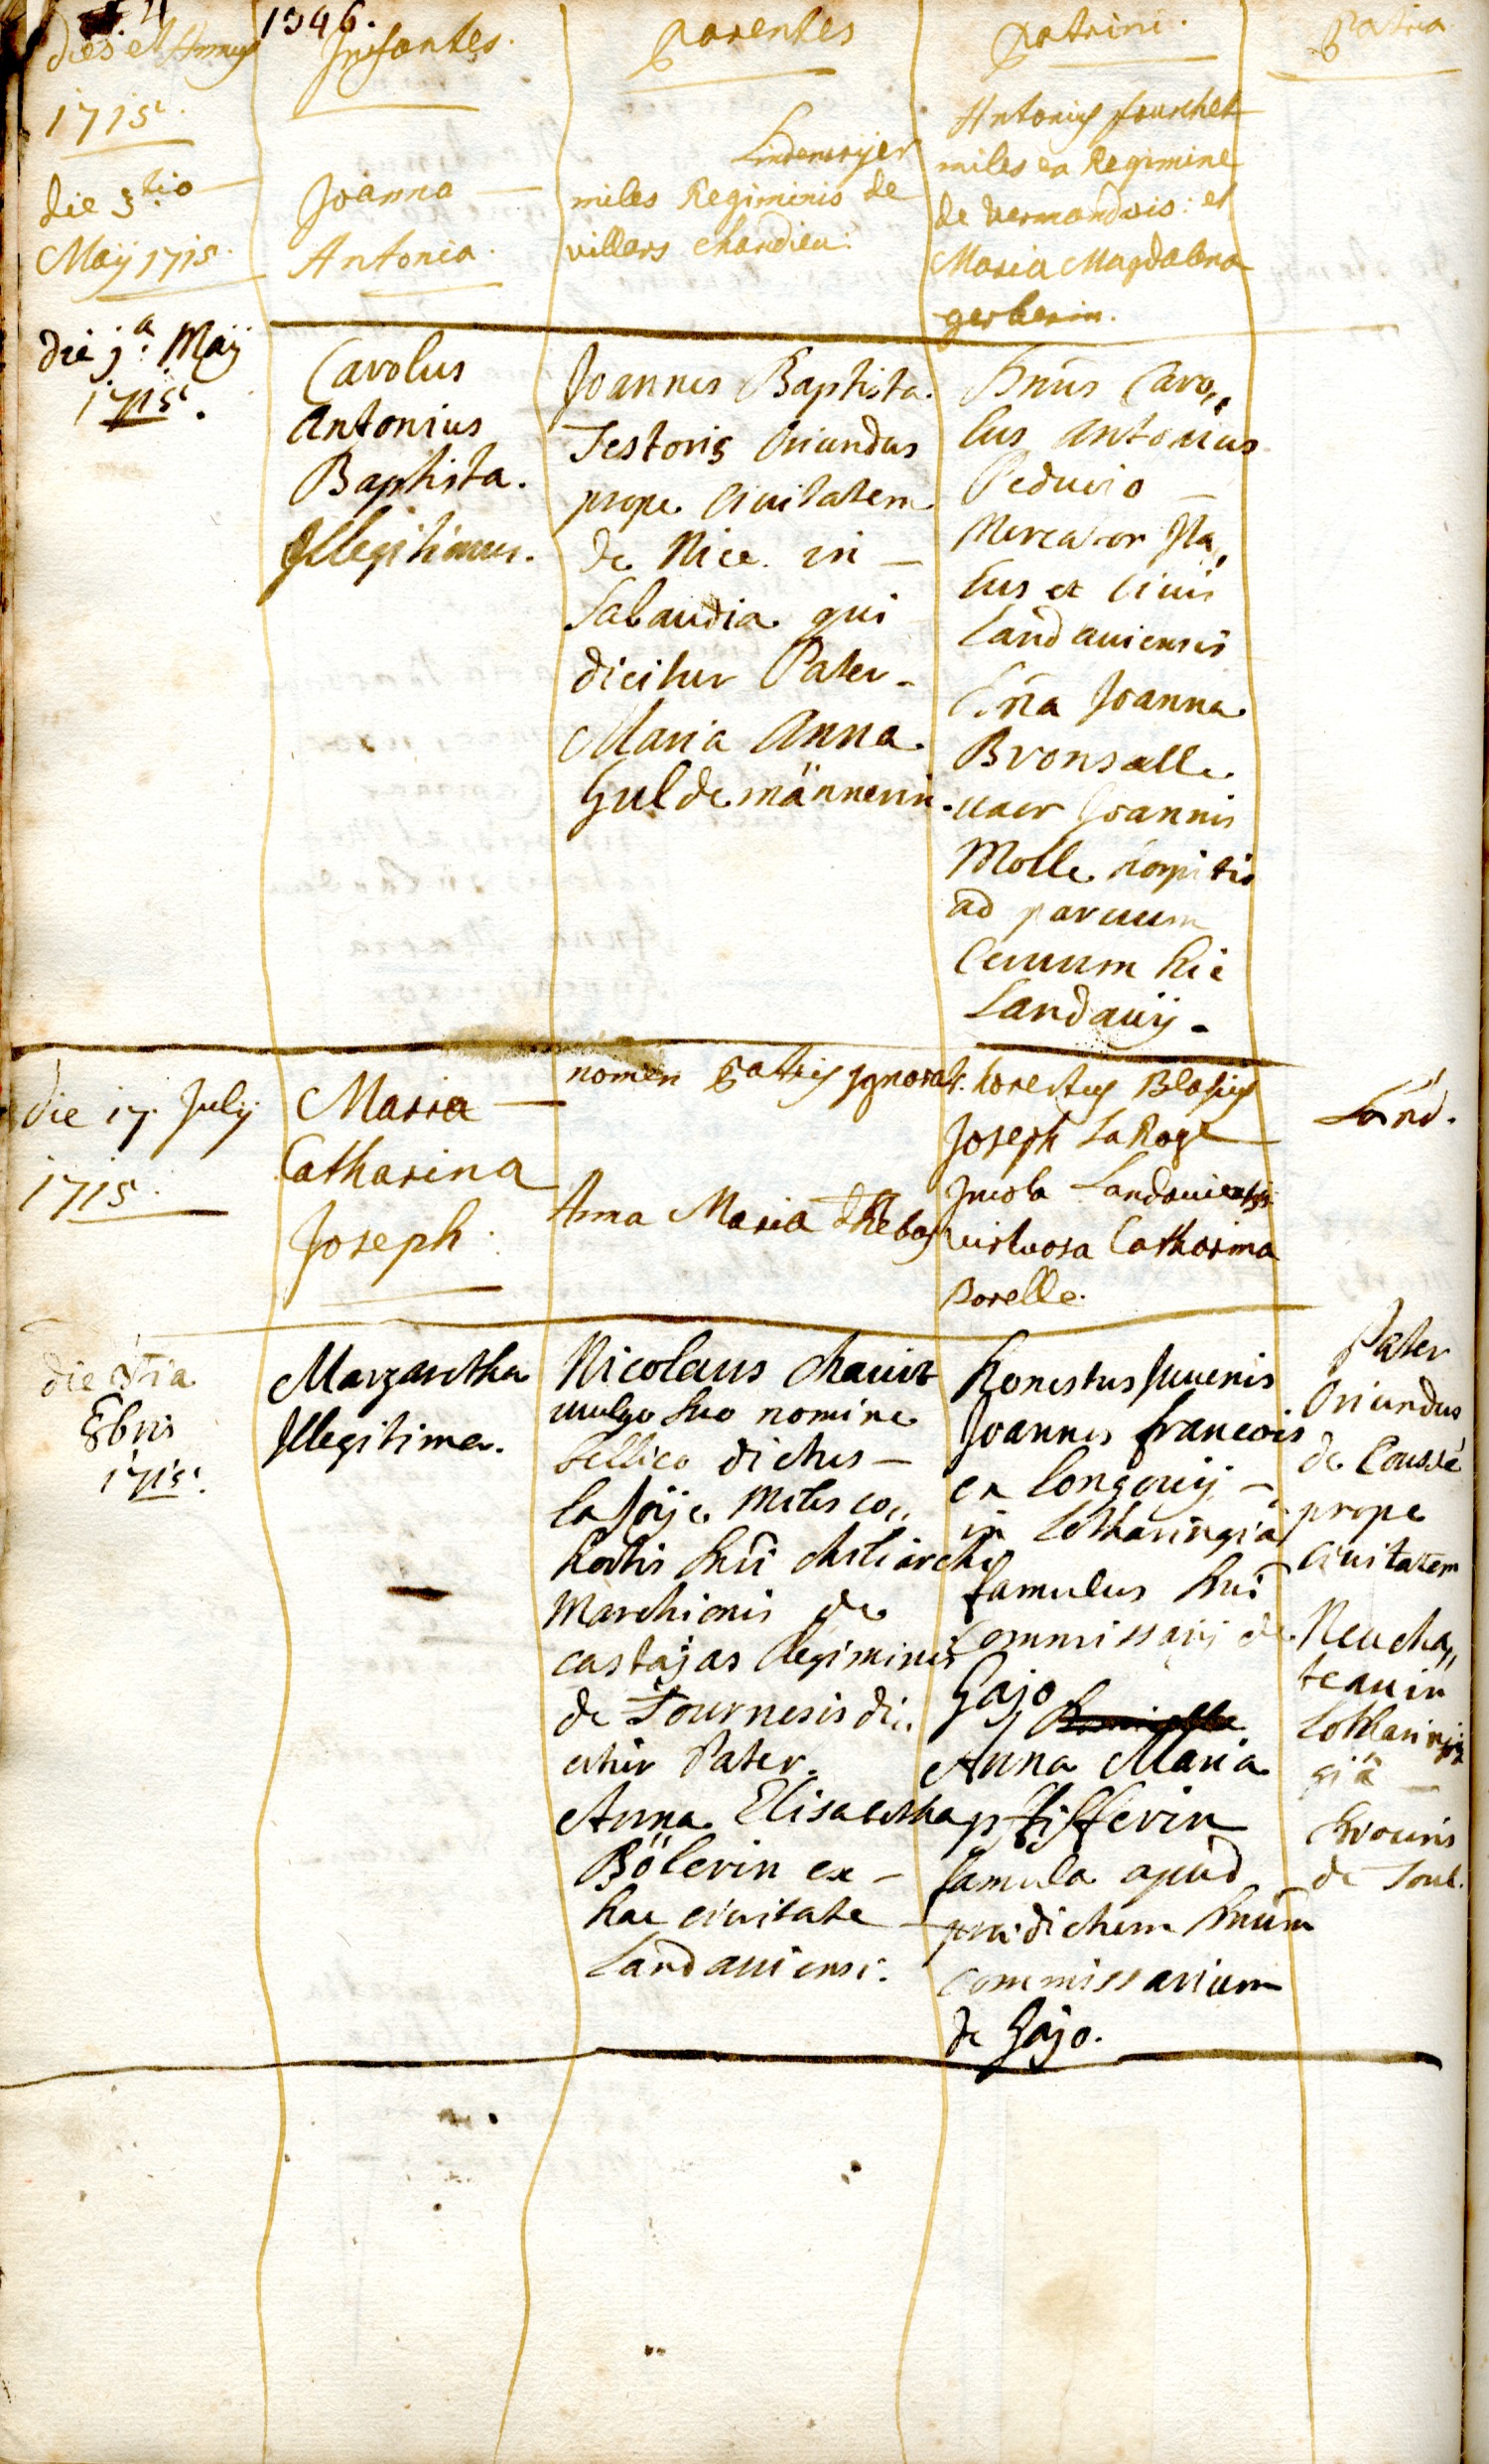 1346.
dies et Annus
Infantes.
parentes
patrini.
patria
1715.
die 3tio
Maÿ 1715.
Joanna
Antonia.
Lindemeyer
miles Regiminis de
villars chandieu.
Antonius fourchet
miles ex Regimine
de vermandois: et
Maria Magdalena
gerberin.
die j.a Maÿ
1715.
Carolus
Antonius
Baptista.
Illegitimus.
Joannes Baptista
Testoris Oriundus
prope Ciuitatem
de Nice in
Sabaudia qui
dicitur Pater.
Maria Anna
Guldemännerin.
Dnus Caro,,
lus Antonius
Peduzio
Mercator Ita,,
lus et Ciuis
Landauiensis
Dna Joanna
Bronsalle
uxor Joannis
Molle hospitis
ad paruum
Ceruum hic
Landauij.
die 17. July
1715.
Maria
Catharina
Joseph.
nomen patris ignorat.
Anna Maria
honestus Blasius
Joseph La Roge
Incola Landauiensis
virtuosa Catharina
Borelle.
Land.
die
8bris
1715.
Margaretha
Illegitima.
Nicolaus
uulgo suo nomine
bellico dictus
la Joÿe Miles co,,
hortis Dni chiliarchi
Marchionis de
castajas Regiminis
de Tournesis di,,
citur Pater.
Anna Elisabetha
Bölerin ex
hac ciuitate
Landauiensi.
honestus Juuenis
Joannes francois
ex longouij
in Lotharingia
famulus Dni
Commissarij de
Gajo
Anna Maria
pfifferin
famula apud
praedictum Dnum
Commissarium
de Gajo.
Pater
Oriundus
de Coussé
prope
ciuitatem
Neucha,,
teau in
Lotharin
giâ
de Toul.